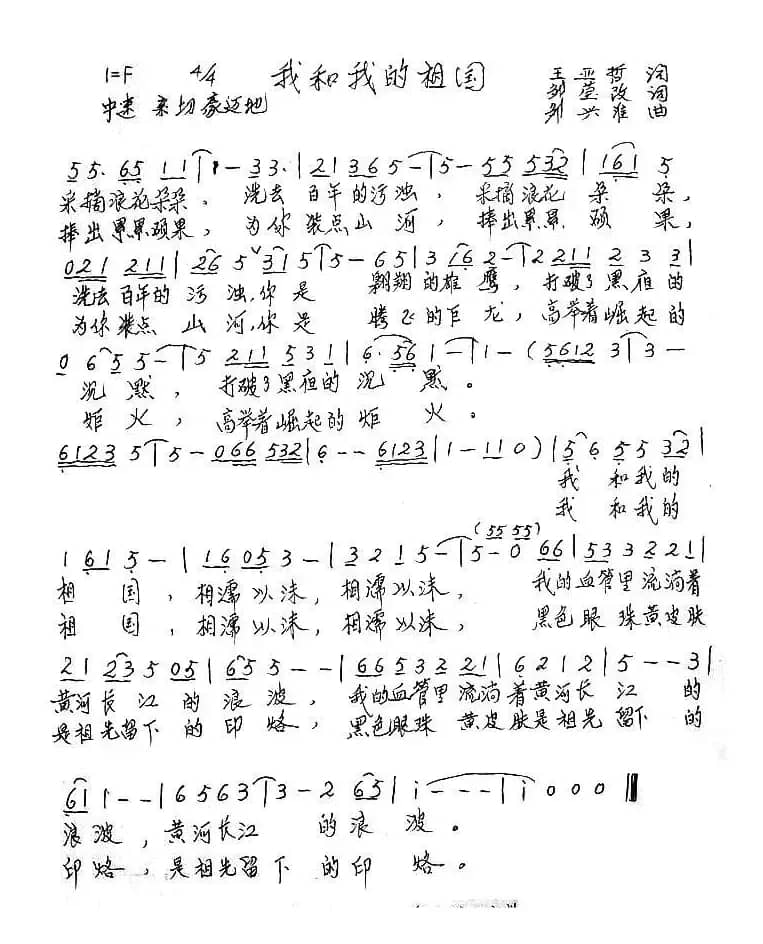 1=F 4/4 我和我的祖国 王亚哲 词
中速 亲切豪迈地 邹莹改词
邹兴淮 曲
55. 65 11 1 - 33. | 21 365 - 5 - 55 532 | 161 5
采摘浪花朵朵, 洗去百年的污浊, 采摘浪花朵朵,
捧出累累硕果, 为你装点山河, 捧出累累硕果,
021 211 | 26 5 ∨ 31 5 5 - 65 | 3 16 2 - 2 211 2 3 3 |
洗去百年的污浊,你是 翱翔的雄鹰, 打破了黑夜的
为你装点山河,你是 腾飞的巨龙, 高举着崛起的
0 6 5 5 - 5 211 5 3 1 | 6. 56 1 - 1 - (5612 3 3 -
沉默, 打破了黑夜的沉默。
炬火, 高举着崛起的炬火。
6123 5 5 - 066 532 | 6 - - 6123 | 1 - 11 0 ) | 5 6 5 5 32 |
我和我的
我和我的
(55 55)
1 61 5 - | 16 05 3 - | 3 2 1 5 - 5 - 0 66 | 53 3 2 21 |
祖国, 相濡以沫, 相濡以沫, 我的血管里流淌着
祖国, 相濡以沫, 相濡以沫, 黑色眼珠黄皮肤
21 23 5 05 | 65 5 - - | 66 53 2 21 | 6 2 1 2 | 5 - - 3 |
黄河长江的浪波, 我的血管里流淌着黄河长江的
是祖先留下的印烙, 黑色眼珠黄皮肤是祖先留下的
61 1 - - | 6 5 6 3 3 - 2 65 | i - - - | i 0 0 0 ‖
浪波, 黄河长江的浪波。
印烙, 是祖先留下的印烙。